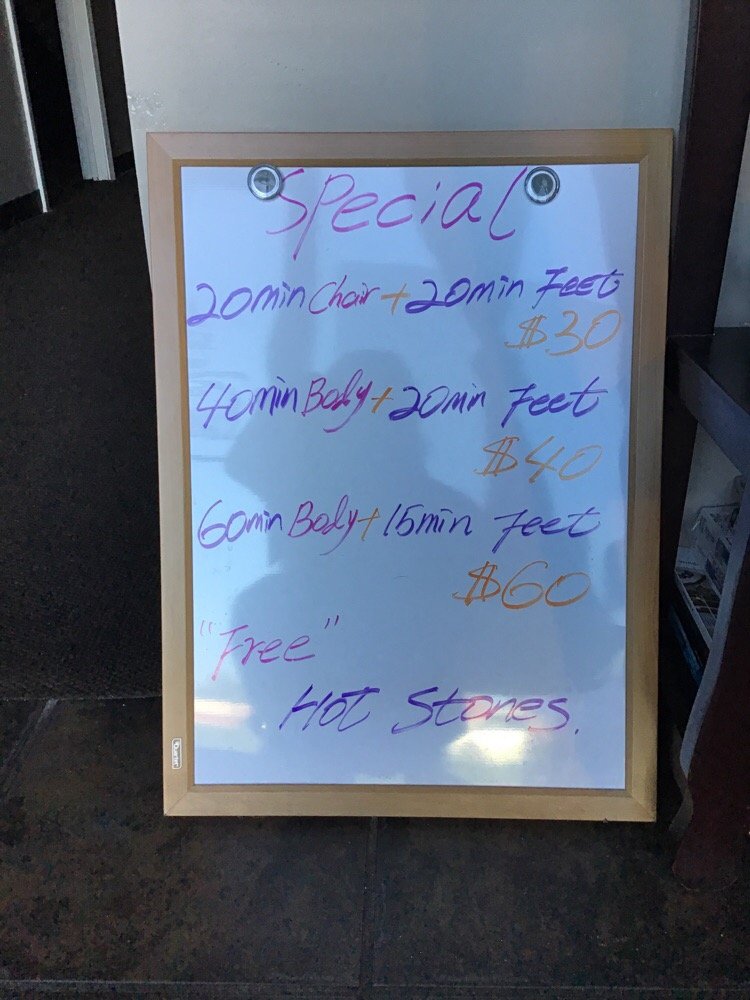 Special
20min Chair + 20min Feet
$30
40min Body + 20min Feet
$40
60min Body + 15min Feet
$60
"Free"
Hot Stones.
Quartet